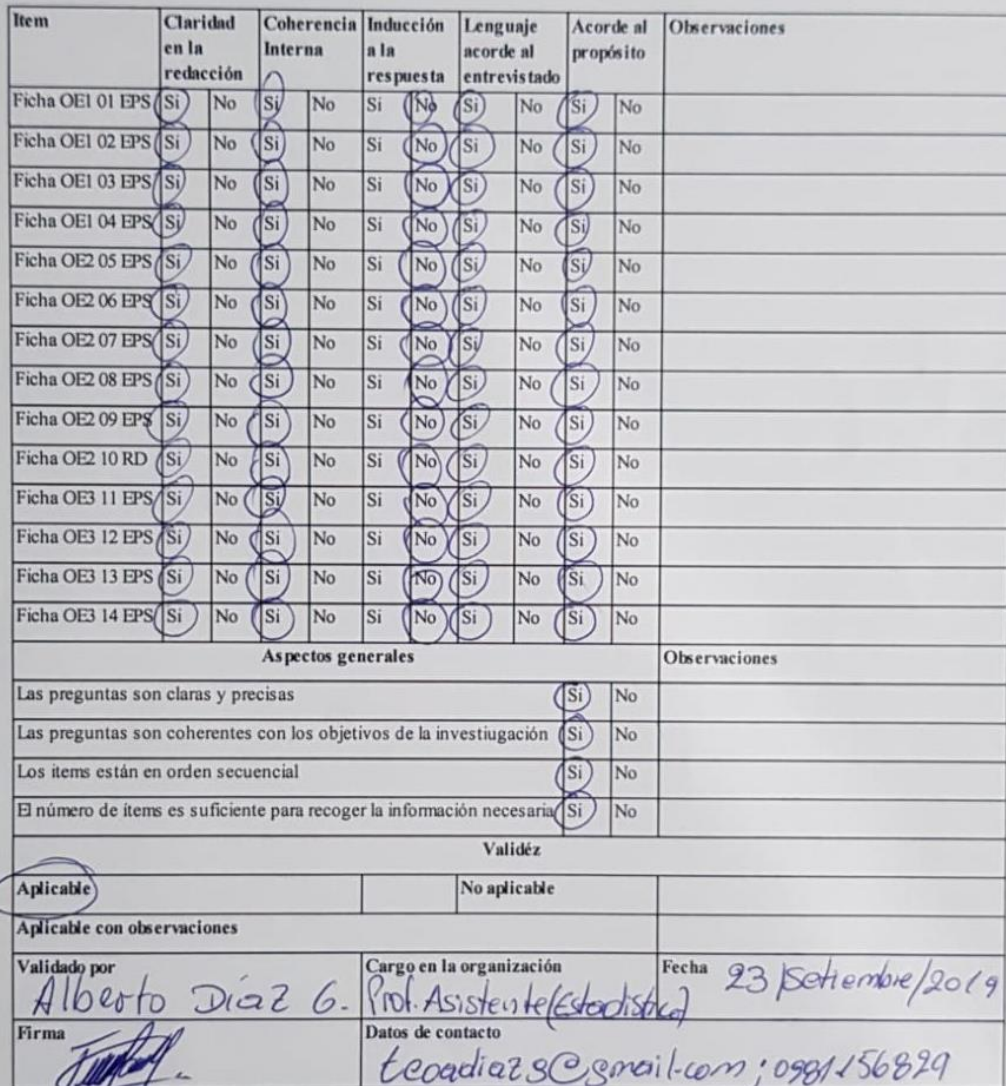 Item Claridad en la redacción Coherencia Interna Inducción a la respuesta Lenguaje acorde al entrevistado Acorde al propósito Observaciones
Ficha OE1 01 EPS Si No Si No Si No Si No Si No
Ficha OE1 02 EPS Si No Si No Si No Si No Si No
Ficha OE1 03 EPS Si No Si No Si No Si No Si No
Ficha OE1 04 EPS Si No Si No Si No Si No Si No
Ficha OE2 05 EPS Si No Si No Si No Si No Si No
Ficha OE2 06 EPS Si No Si No Si No Si No Si No
Ficha OE2 07 EPS Si No Si No Si No Si No Si No
Ficha OE2 08 EPS Si No Si No Si No Si No Si No
Ficha OE2 09 EPS Si No Si No Si No Si No Si No
Ficha OE2 10 RD Si No Si No Si No Si No Si No
Ficha OE3 11 EPS Si No Si No Si No Si No Si No
Ficha OE3 12 EPS Si No Si No Si No Si No Si No
Ficha OE3 13 EPS Si No Si No Si No Si No Si No
Ficha OE3 14 EPS Si No Si No Si No Si No Si No
Aspectos generales Observaciones
Las preguntas son claras y precisas Si No
Las preguntas son coherentes con los objetivos de la investiugación Si No
Los items están en orden secuencial Si No
El número de items es suficiente para recoger la información necesaria Si No
Validéz
Aplicable No aplicable
Aplicable con observaciones
Validado por Cargo en la organización Fecha 23/Setiembre/2019
Alberto Díaz G. Prof. Asistente (Estadística)
Firma Datos de contacto
@gmail.com;